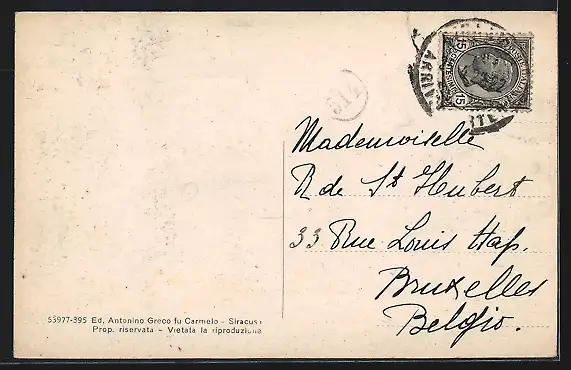 15 15
ARRIVI
Mademoiselle
R de St Hubert
33 Rue Louis Hap.
Bruxelles
Belgio.
53977-395 Ed. Antonino Greco fu Carmelo - Siracusa
Prop. riservata - Vietata la riproduzione